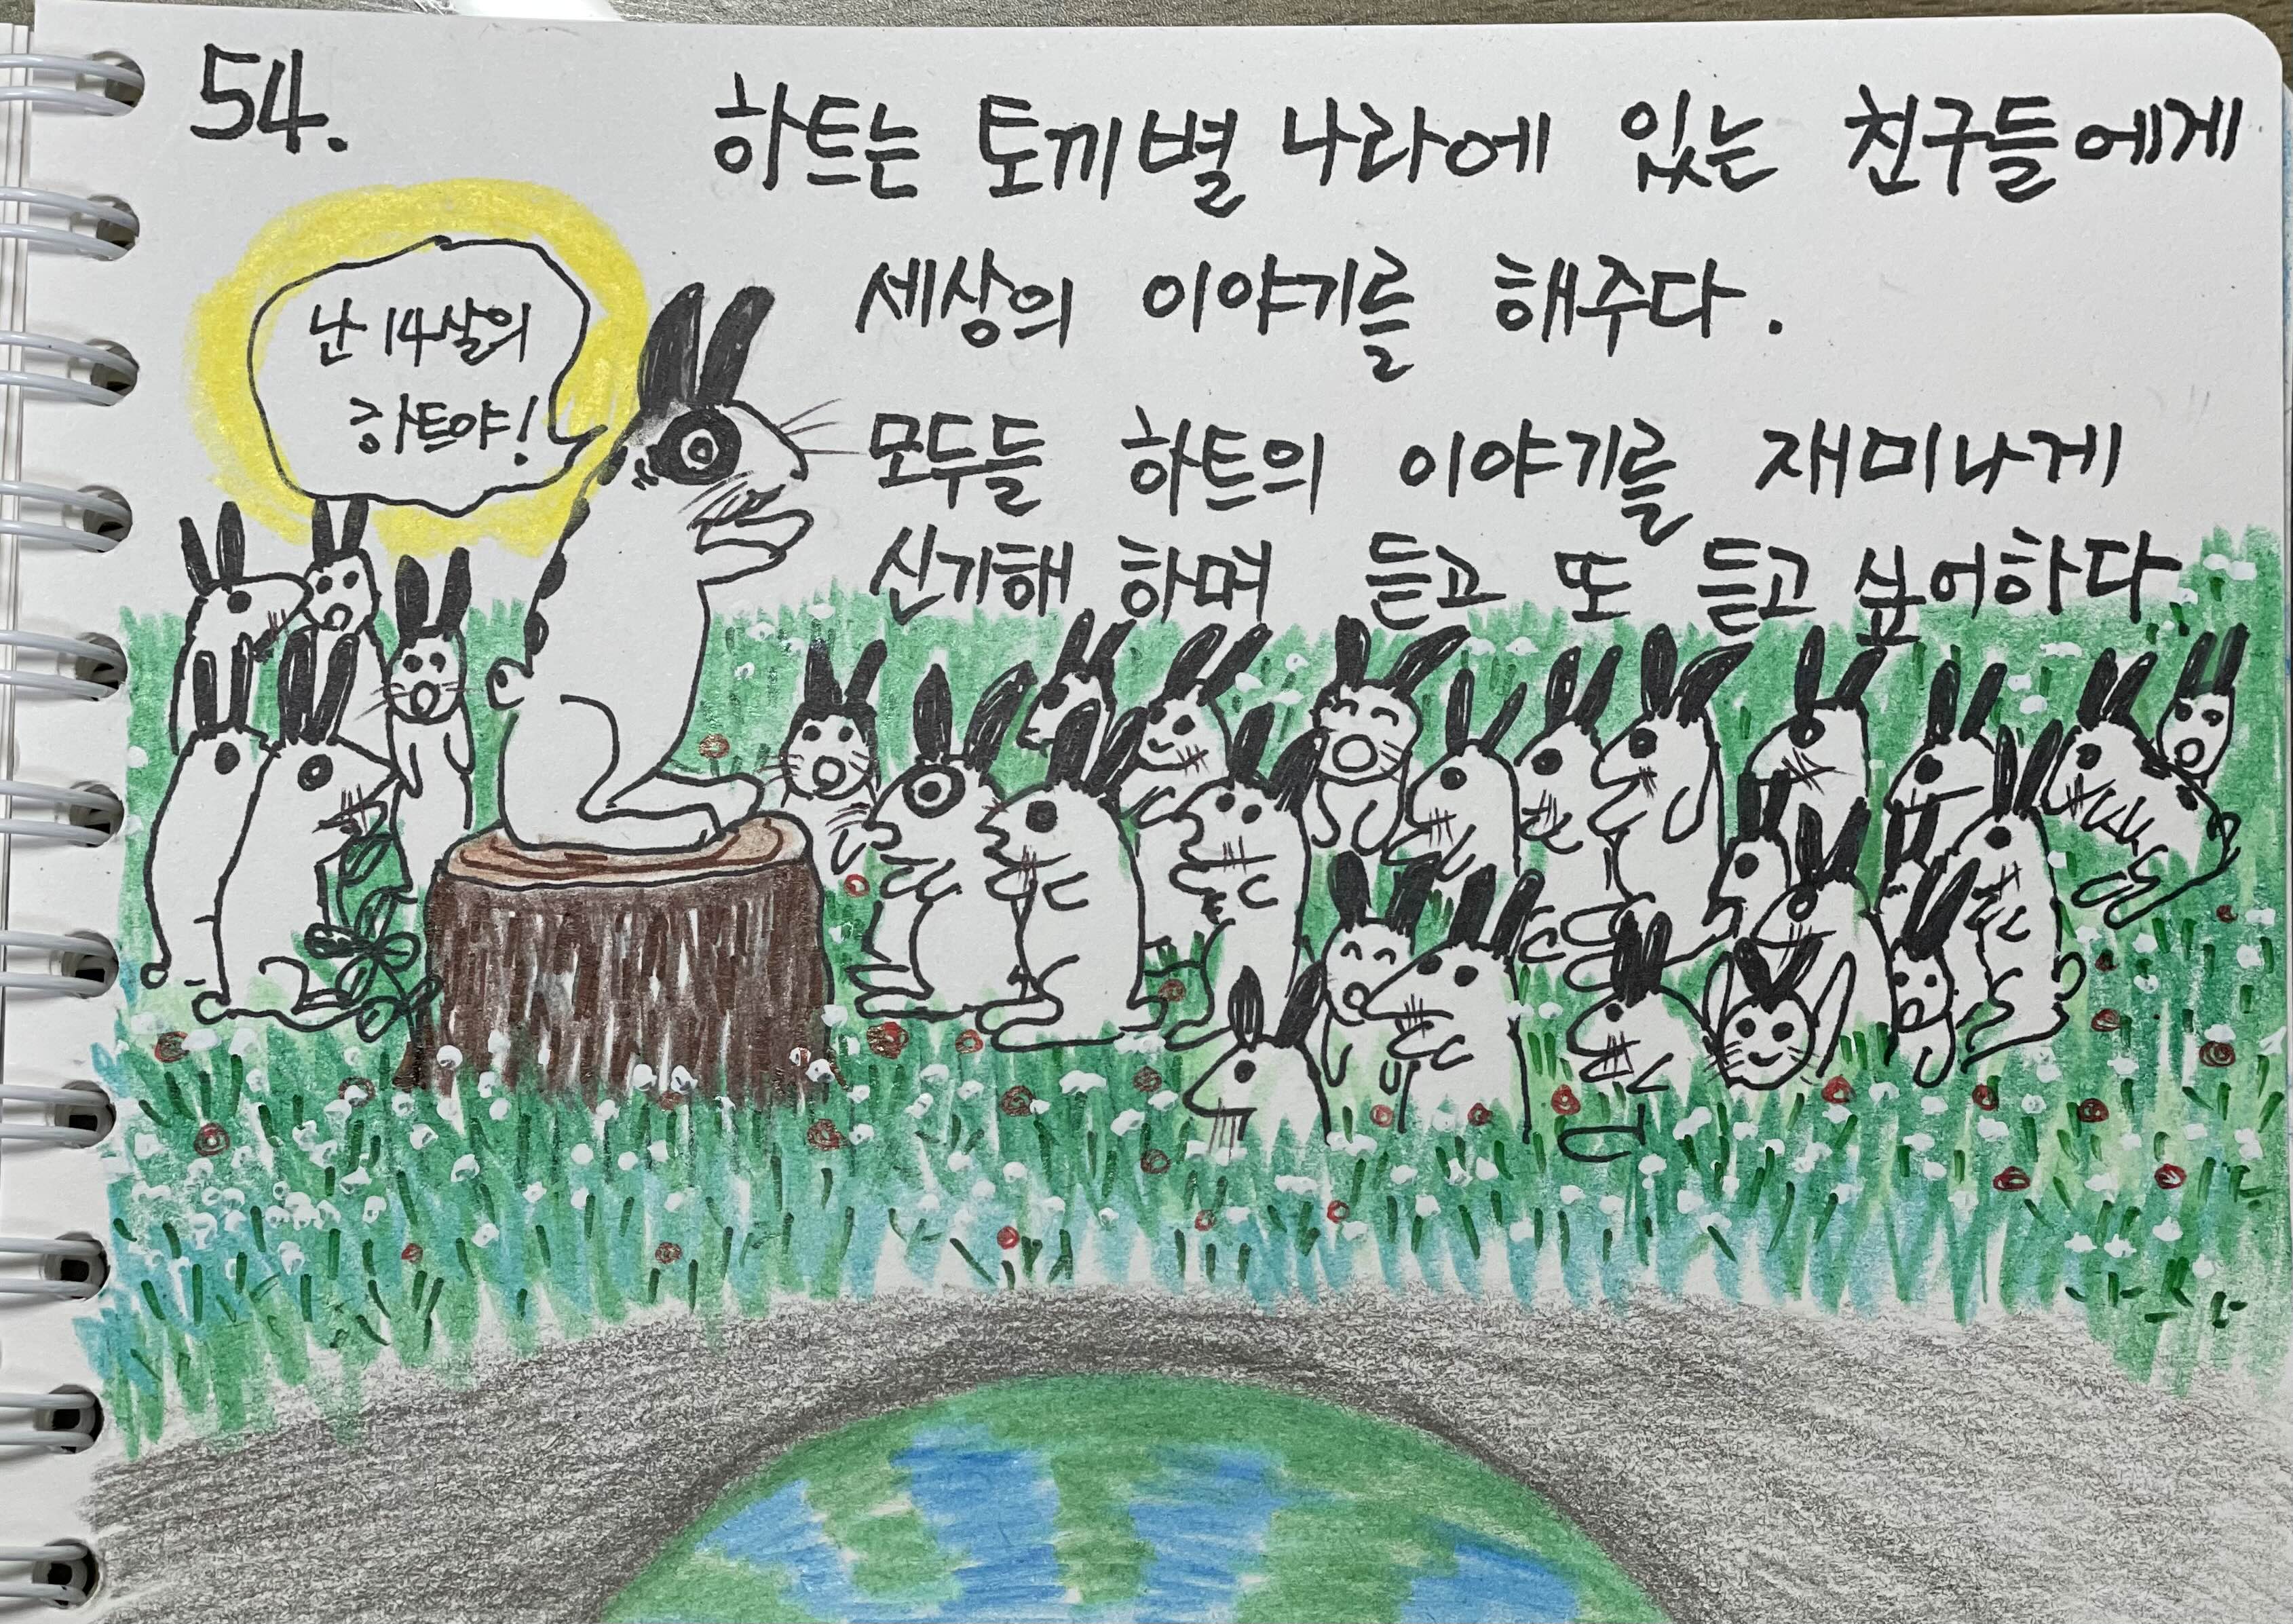 54.
하트는 토끼별 나라에 있는 친구들에게
세상의 이야기를 해주다.
난 14살의
하트야!
모두들 하트의 이야기를 재미나게
신기해 하며 듣고 또 듣고 싶어하다.